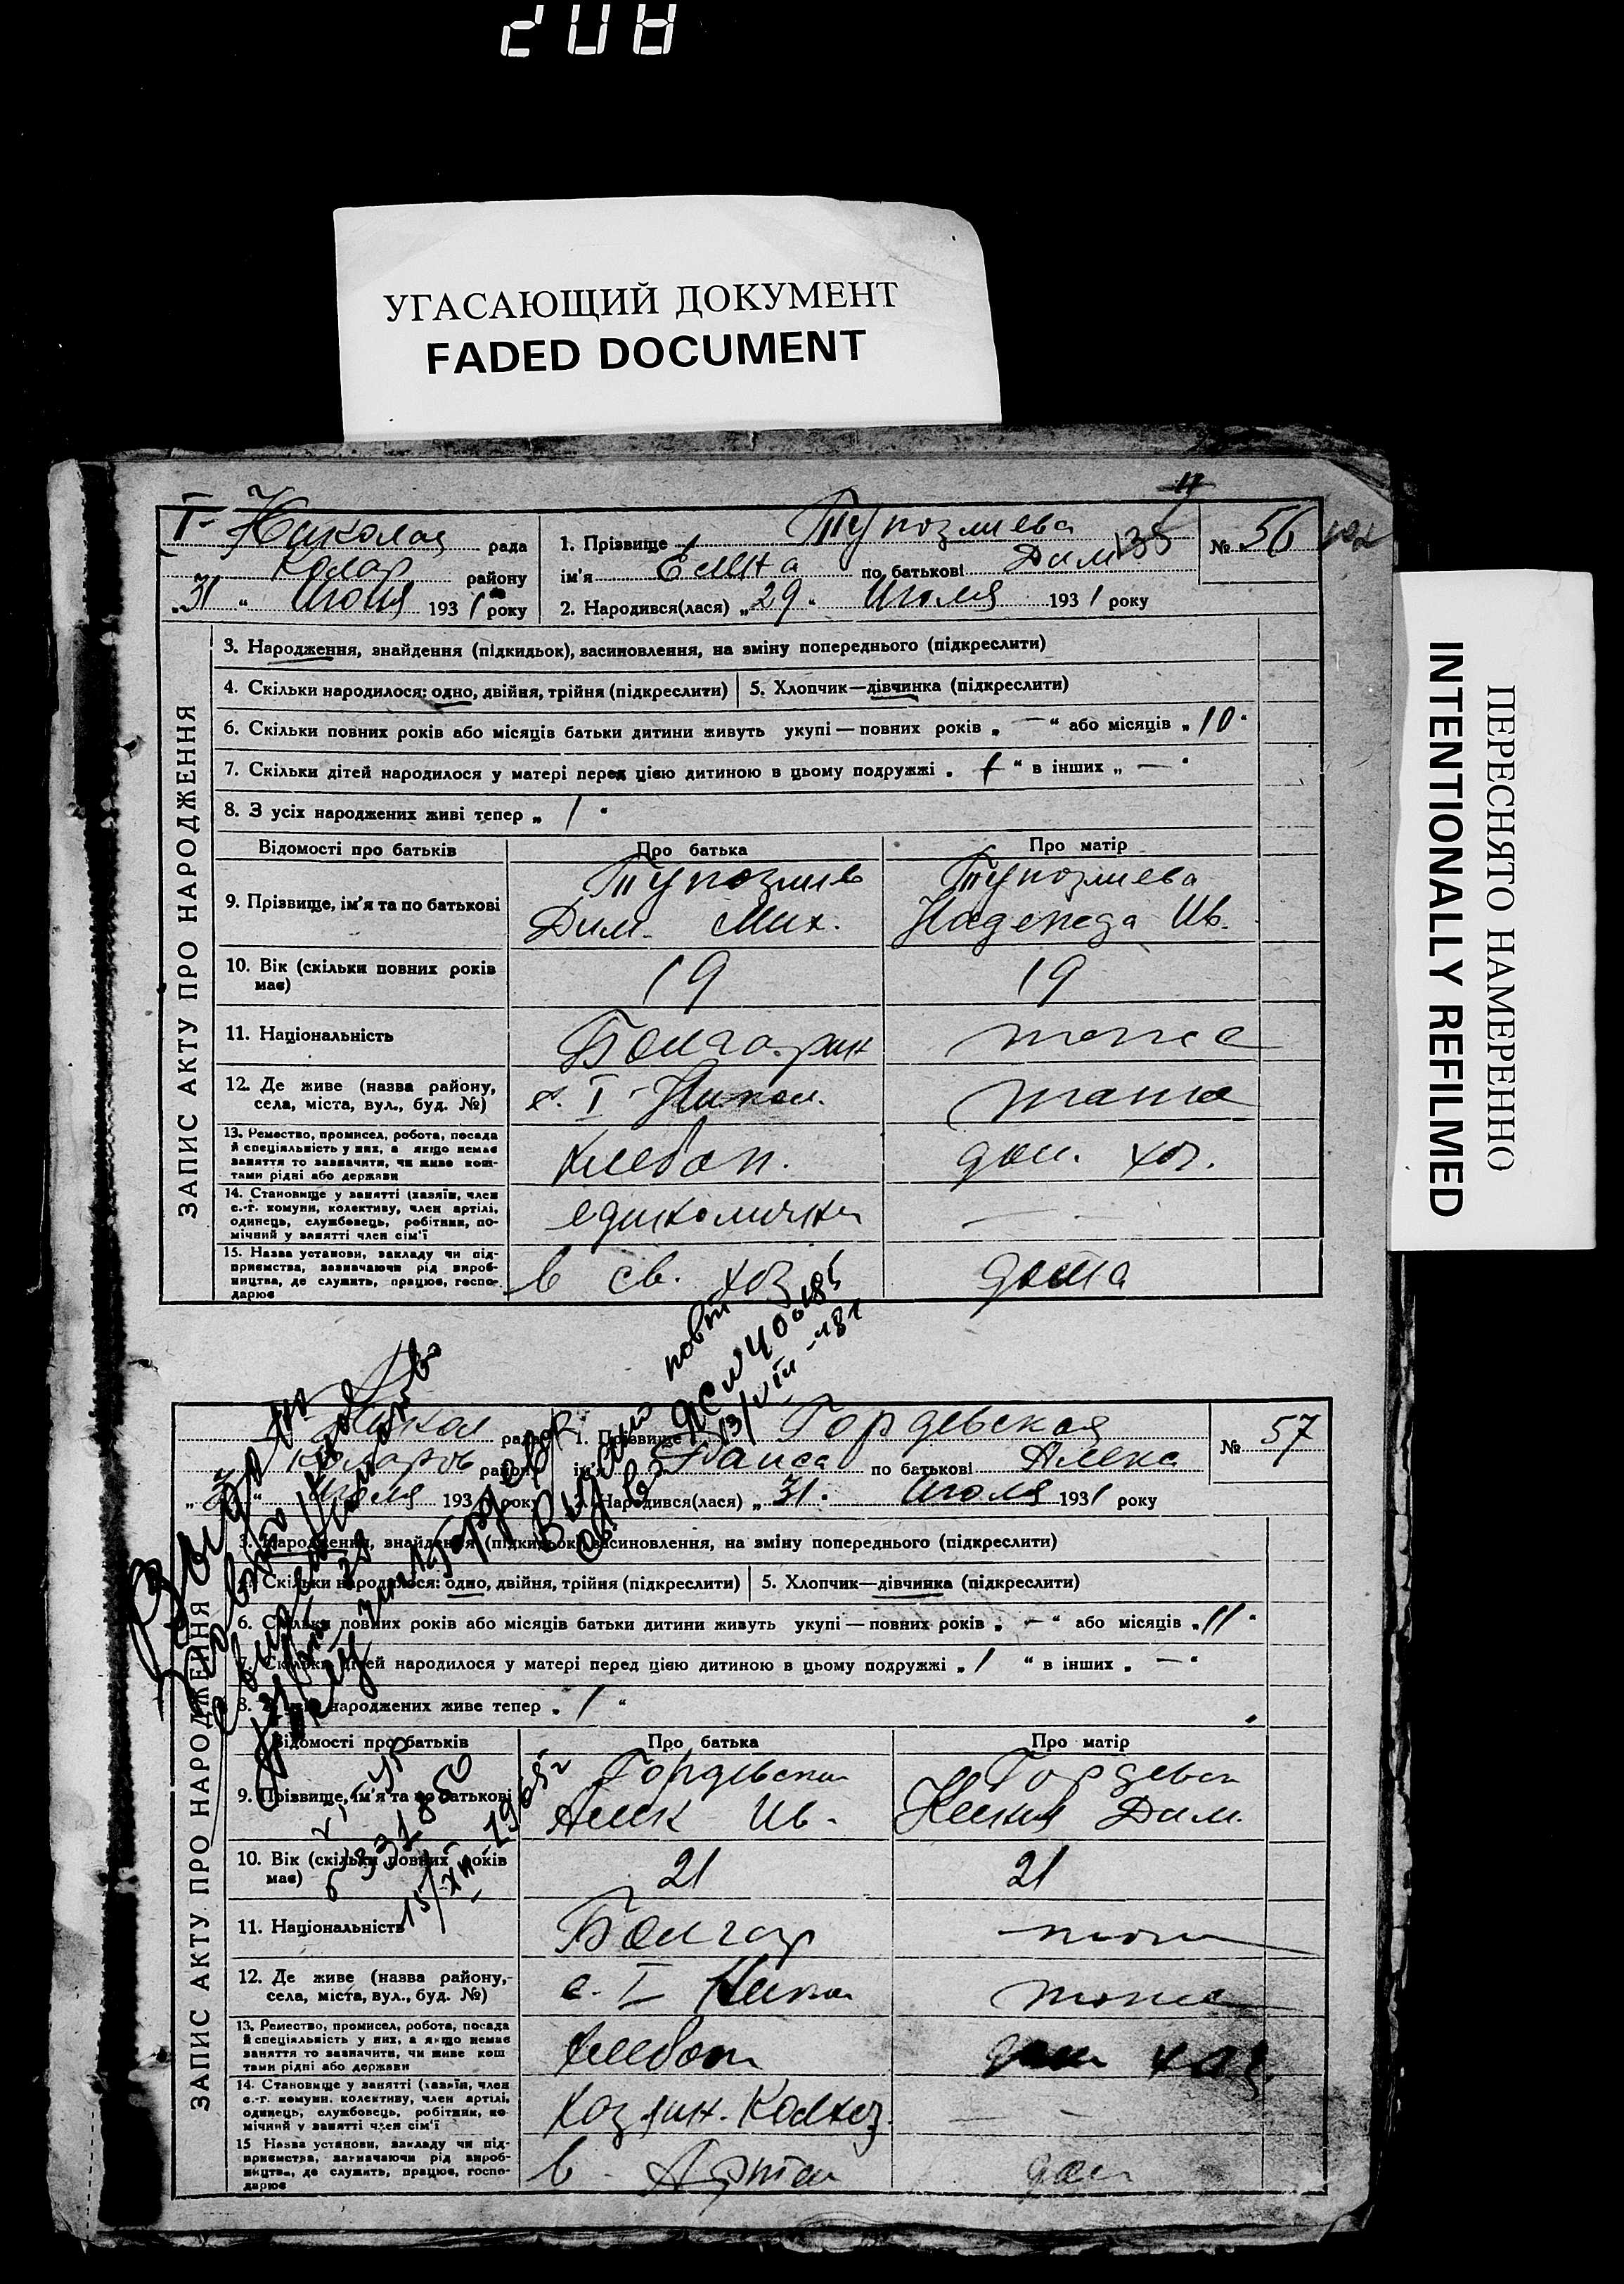 208
УГАСАЮЩИЙ ДОКУМЕНТ
FADED DOCUMENT
ПЕРЕСНЯТО НАМЕРЕННО
INTENTIONALLY REFILMED
17
ЗАПИС АКТУ ПРО НАРОДЖЕННЯ
I- Николай рада
Колар району
„31 “ Июля 1931 року
1. Прізвище Тупозлиева
ім'я Елена по батькові Дим 135
2. Народився(лася) „29 “ Июля 1931 року
№ 56
3. Народження, знайдення (підкидьок), засиновлення, на зміну попереднього (підкреслити)
4. Скільки народилося: одно, двійня, трійня (підкреслити) 5. Хлопчик—дівчинка (підкреслити)
6. Скільки повних років або місяців батьки дитини живуть укупі — повних років „ — “ або місяців „ 10 “
7. Скільки дітей народилося у матері перед цією дитиною в цьому подружжі „ 1 “ в інших „ — “
8. З усіх народжених живі тепер „ 1 “
Відомості про батьків Про батька Про матір
9. Прізвище, ім'я та по батькові Тупозлиев Дим. Мих. Тупозлиева Надежда Ив.
10. Вік (скільки повних років має) 19 19
11. Національність Болгарин тоже
12. Де живе (назва району, села, міста, вул., буд. №) с. I- Никол. тоже
13. Ремество, промисел, робота, посада й спеціяльність у них, а якщо немає заняття то зазначити, чи живе коштами рідні або держави хлебоп. дом. хоз.
14. Становище у занятті (хазяїн, член с.-г. комуни, колективу, член артілі, одинець, службовець, робітник, помічний у занятті член сім'ї — —
15. Назва установи, закладу чи підприємства, зазначаючи рід виробництва, де служить, працює, господарює в св. хоз дома
ЗАПИС АКТУ ПРО НАРОДЖЕННЯ
Никол рада
Коларов району
Июля 1931 року
1. Прізвище Гордевская
ім'я Раиса по батькові Алекс
2. Народився(лася) „31. Июля 1931 року
№ 57
3. Народження, знайдення (підкидьок), засиновлення, на зміну попереднього (підкреслити)
4. Скільки народилося: одно, двійня, трійня (підкреслити) 5. Хлопчик—дівчинка (підкреслити)
6. Скільки повних років або місяців батьки дитини живуть укупі — повних років „ — “ або місяців „ 11 “
7. Скільки дітей народилося у матері перед цією дитиною в цьому подружжі „ 1 “ в інших „ — “
8. З усіх народжених живе тепер „ 1 “
Відомості про батьків Про батька Про матір
9. Прізвище, ім'я та по батькові Алек Ив. Дим.
10. Вік (скільки повних років має) 21 21
11. Національність Болгар тоже
12. Де живе (назва району, села, міста, вул., буд. №) с. I Никол тоже
13. Ремество, промисел, робота, посада й спеціяльність у них, а якщо немає заняття то зазначити, чи живе коштами рідні або держави хлебоп дом хоз.
14. Становище у занятті (хазяїн, член с.-г. комуни, колективу, член артілі, одинець, службовець, робітник, помічний у занятті член сім'ї Колхоз. — —
15 Назва установи, закладу чи підприємства, зазначаючи рід виробництва, де служить, працює, господарює в Артели дом